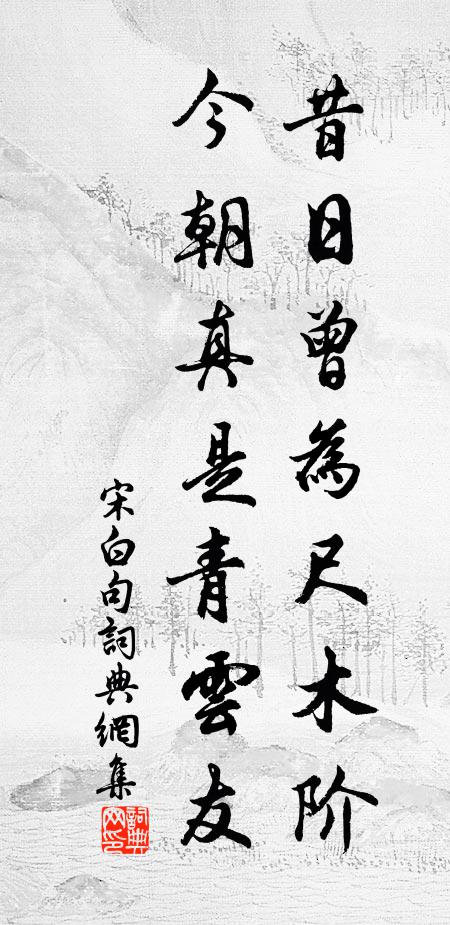 昔日曾為尺木阶
今朝真是青雲友
宋白句詞典網集
詞典网印